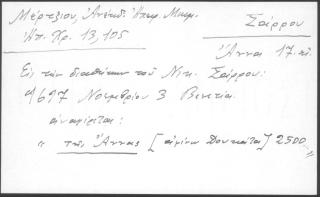 Μέρτζιου, Ἀνέκδ. Ἠπειρ. Μνημ.
Ἠπ. Χρ. 13, 105
Σαΐρρου
Ἄννα 17.
Εἰς τὴν διαθήκην τοῦ Νικ. Σαΐρρου:
1697 Νοεμβρίου 3 Βενετία.
ἀναφέρεται:
" τῆς Ἄννας [ἀφίνω Δουκάτα] 2500